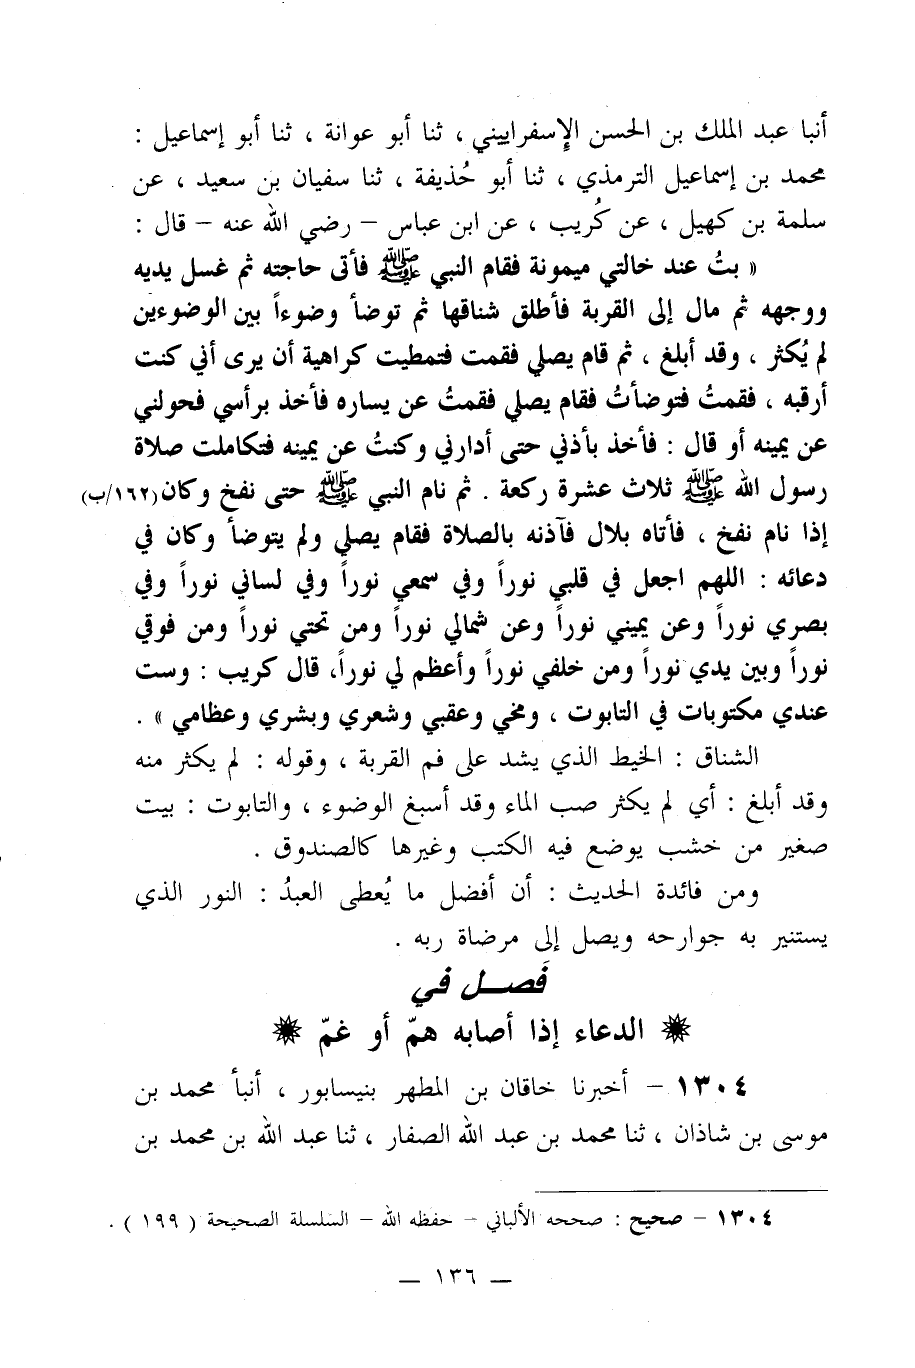 أنبا عبد الملك بن الحسن الإسفراييني ، ثنا أبو عوانة ، ثنا أبو إسماعيل :
محمد بن إسماعيل الترمذي ، ثنا أبو حُذيفة ، ثنا سفيان بن سعيد ، عن
سلمة بن كهيل ، عن كُريب ، عن ابن عباس – رضي الله عنه – قال :
« بتُ عند خالتي ميمونة فقام النبي ﷺ فأتى حاجته ثم غسل يديه
ووجهه ثم مال إلى القربة فأطلق شناقها ثم توضأ وضوءاً بين الوضوءين
لم يُكثر ، وقد أبلغ ، ثم قام يصلي فقمت فتمطيت كراهية أن يرى أني كنت
أرقبه ، فقمتُ فتوضأتُ فقام يصلي فقمتُ عن يساره فأخذ برأسي فحولني
عن يمينه أو قال : فأخذ بأذني حتى أدارني وكنتُ عن يمينه فتكاملت صلاة
رسول الله ﷺ ثلاث عشرة ركعة . ثم نام النبي ﷺ حتى نفخ وكان (١٦٢/ب)
إذا نام نفخ ، فأتاه بلال فآذنه بالصلاة فقام يصلي ولم يتوضأ وكان في
دعائه : اللهم اجعل في قلبي نوراً وفي سمعي نوراً وفي لساني نوراً وفي
بصري نوراً وعن يميني نوراً وعن شمالي نوراً ومن تحتي نوراً ومن فوقي
نوراً وبين يدي نوراً ومن خلفي نوراً وأعظم لي نوراً، قال كريب : وست
عندي مكتوبات في التابوت ، ومخي وعقبي وشعري وبشري وعظامي » .
الشناق : الخيط الذي يشد على فم القربة ، وقوله : لم يكثر منه
وقد أبلغ : أي لم يكثر صب الماء وقد أسبغ الوضوء ، والتابوت : بيت
صغير من خشب يوضع فيه الكتب وغيرها كالصندوق .
ومن فائدة الحديث : أن أفضل ما يُعطى العبدُ : النور الذي
يستنير به جوارحه ويصل إلى مرضاة ربه .
فَصل في
الدعاء إذا أصابه همّ أو غمّ
١٣٠٤ – أخبرنا خاقان بن المطهر بنيسابور ، أنبأ محمد بن
موسى بن شاذان ، ثنا محمد بن عبد الله الصفار ، ثنا عبد الله بن محمد بن
١٣٠٤ – صحيح : صححه الألباني – حفظه الله – السلسلة الصحيحة ( ١٩٩ ) .
— ١٣٦ —